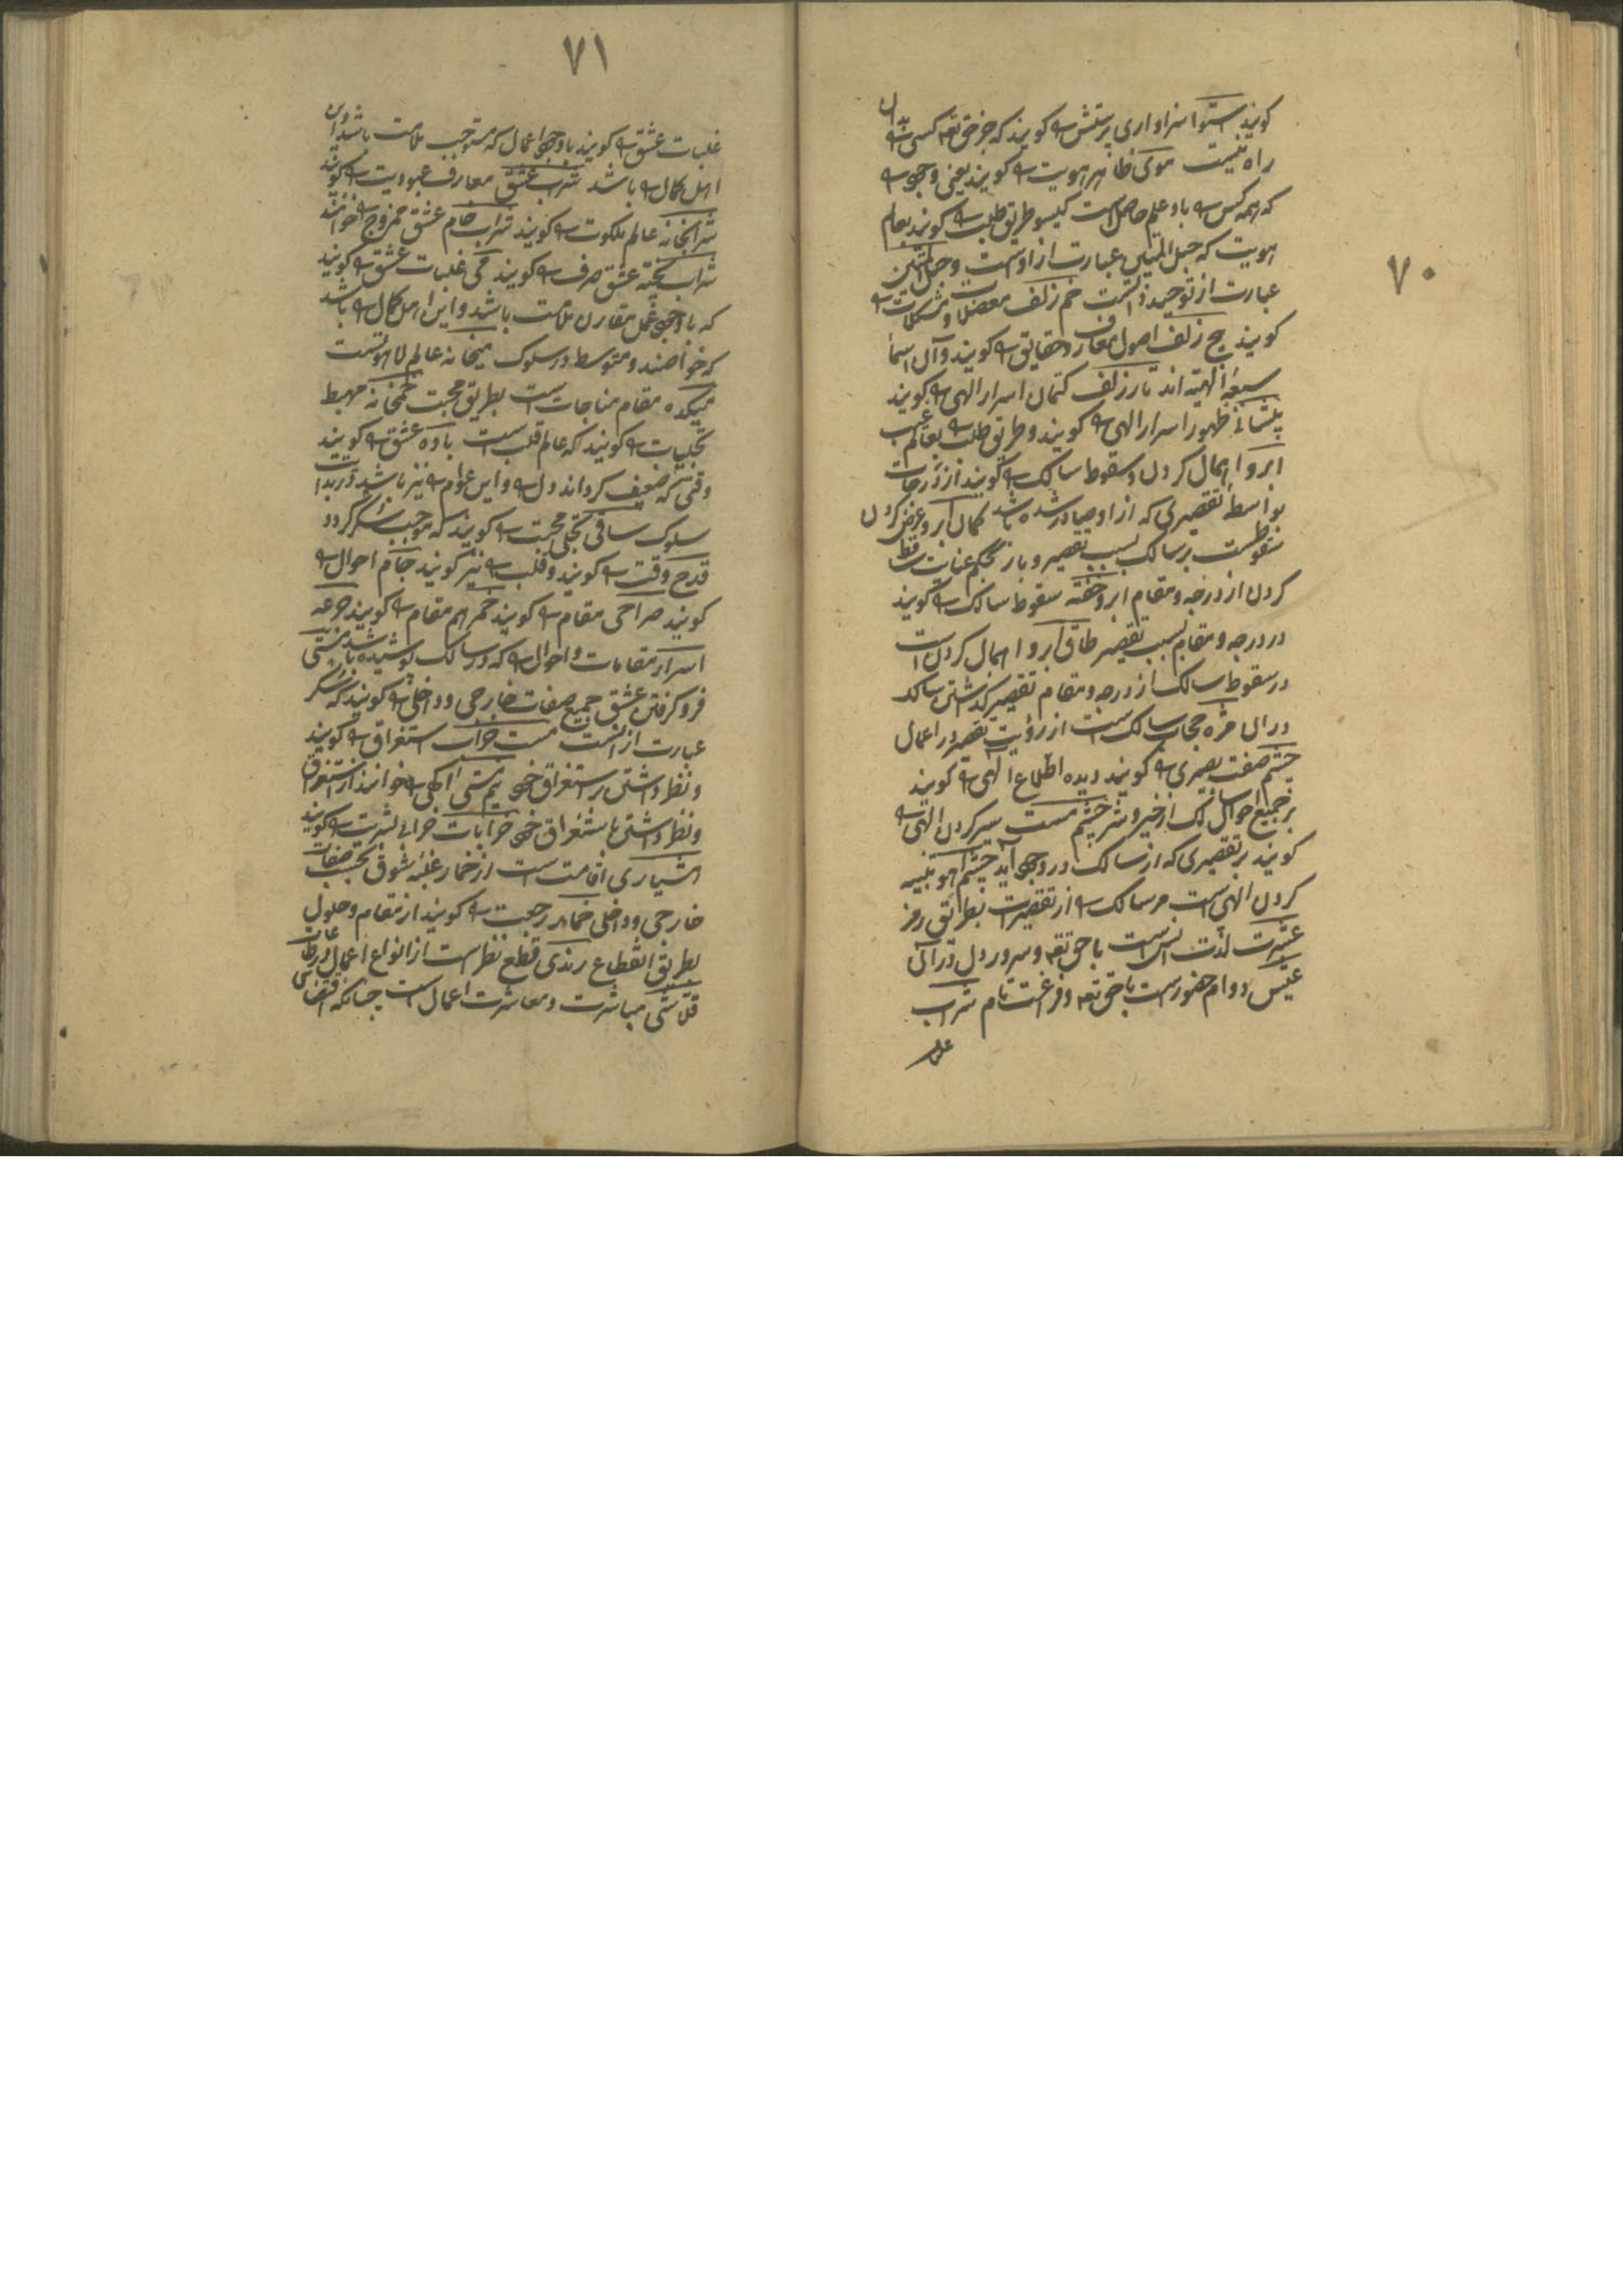 ۷۰
کویند استوا سزاواری پرستش را کویند که جز حق تعه کسی را بدان
راه نیست موی ظاهر هویت را کویند یعنی وجودی
که همه کس را باو علم حاصل است کیسو طریق طلب را کویند بعالم
هویت که حبل المتین عبارت از اوست و حبل المتین
عبارت از توحید ذاتست خم زلف معضلات و مشکلات را
کویند پیچ زلف اصول معارف و حقایق را کویند و آن اسما
سبعه الهیه اند تار زلف کتمان اسرار الهی را کویند
پیشانی ظهور اسرار الهی را کویند و طریق طلب را بعالم غیب
ابرو اهمال کردن و سقوط سالک را کویند از درجات
بواسطه تقصیری که ازو صادر شده باشد کمان ابرو عرض کردن
سقوطست بر سالک بسبب تقصیر و باز بحکم عنایت ساقط
کردن از درجه و مقام ابرو خفته سقوط سالک را کویند
در درجه و مقام بسبب تقصیر طاق ابرو اهمال کردن است
در سقوط سالک از درجه و مقام تقصیر کذشتن سالک
در ان مژه حجاب سالک است از رؤیت تقصیر در اعمال
چشم صفت بصیری را کویند دیده اطلاع الهی را کویند
بر جمیع احوال سالک از خیر و شر چشم مست ستر کردن الهی را
کویند بر تقصیری که از سالک در وجود آید چشم آهو تنبیه
کردن الهی است مر سالک را از تقصیرات بطریق رمز
عشرت لذت انس است با حق تعه و سرور دل در آن
عیش دوام حضورست با حق تعه و فراغت تام شراب
غلبا
۷۱
غلبات عشق را کویند با وجود اعمال که مستوجب ملامت باشد و این
اهل کمال را باشد شراب عشق معارف عبودیت را کویند
شرابخانه عالم ملکوت را کویند شراب خام عشق ممزوج را خوانند
شراب پخته عشق صرف را کویند می غلبات عشق را کویند
که با وجود عمل مقارن ملامت باشد و این اهل کمال را باشد
که خواصند و متوسط در سلوک میخانه عالم لاهوتست
میکده مقام مناجات است بطریق محبت خمخانه مهبط
تجلیات را کویند که عالم قلب است باده عشق را کویند
وقتی که ضعیف کرداند دل را و این عوام را نیز باشد در بدایت
سلوک ساقی تجلی محبت را کویند که موجب سکر کردد
قدح وقت را کویند و قلب را نیز کویند جام احوال را
کویند صراحی مقام را کویند خم هم مقام را کویند جرعه
اسرار مقامات و احوال را که در سالک پوشیده باشد مستی
فرو کرفتن عشق جمیع صفات خارجی و داخلی را کویند که سکر
عبارت از انست مست خراب استغراق را کویند
و نظر داشتن بر استغراق خود نیم مستی آکهی را خوانند از استغراق
و نظر داشتن باستغراق خود خرابات خرابی بشریت را کویند
هشیاری افاقت است از خمار غلبه شوق بحسب صفات
خارجی و داخلی خمار رجعت را کویند از مقام وصول
بطریق انقطاع رندی قطع نظر است از انواع اعمال و طاعات
قلاشی مباشرت و معاشرت اعمال است چنانکه اقتضای